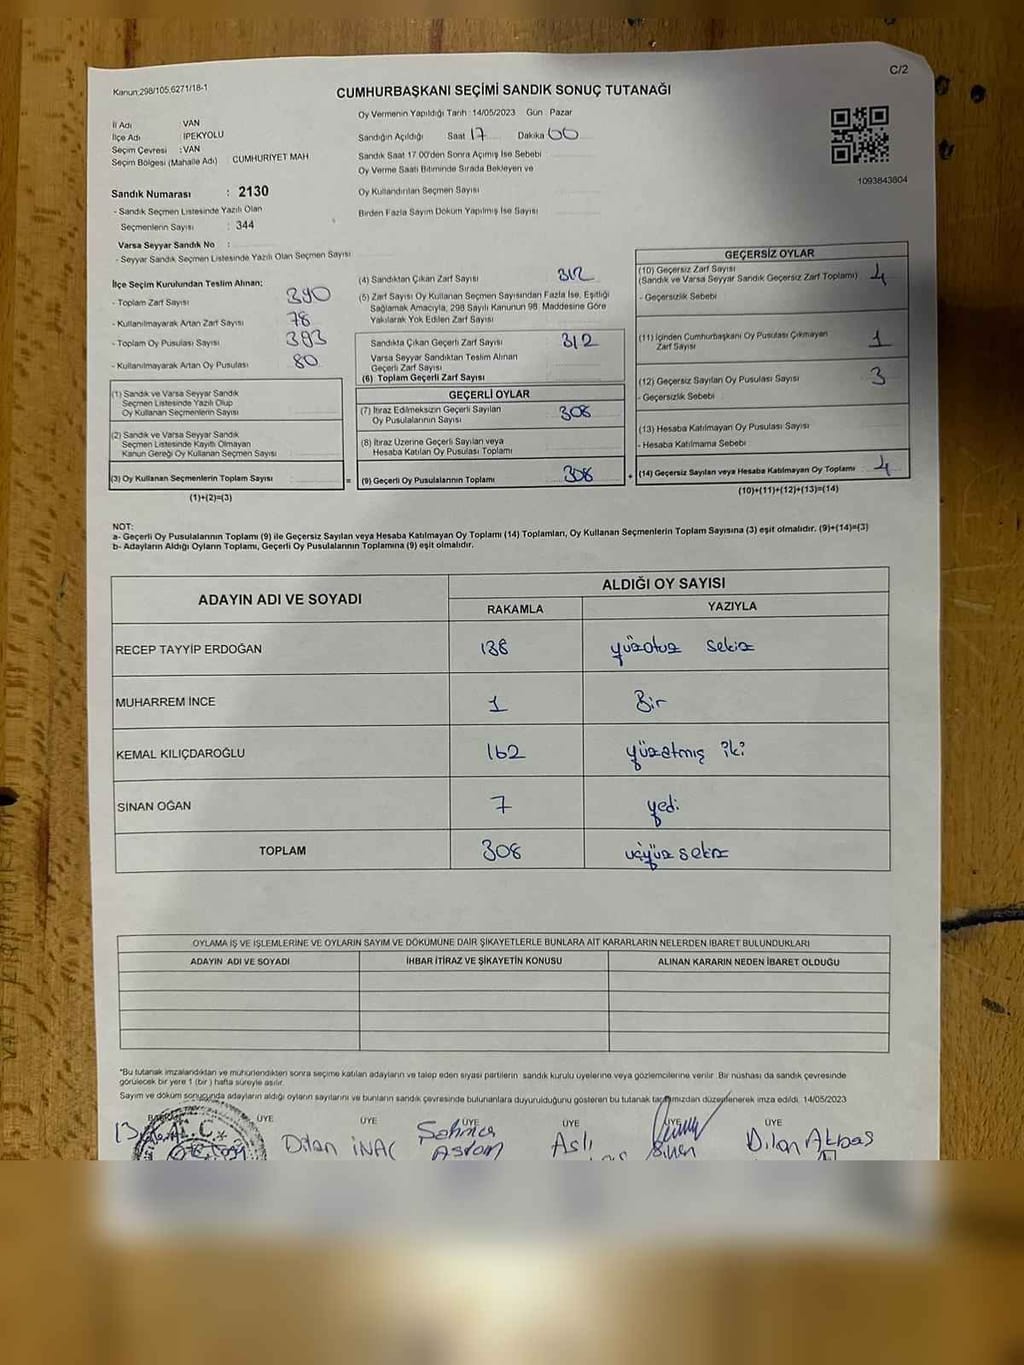 C/2
Kanun:298/105,6271/18-1
CUMHURBAŞKANI SEÇİMİ SANDIK SONUÇ TUTANAĞI
Oy Vermenin Yapıldığı Tarih : 14/05/2023 Gün : Pazar
İl Adı : VAN
İlçe Adı : İPEKYOLU
Seçim Çevresi : VAN
Seçim Bölgesi (Mahalle Adı) : CUMHURİYET MAH
Sandığın Açıldığı Saat 17 Dakika 00
Sandık Saat 17.00'den Sonra Açımış İse Sebebi
Oy Verme Saati Bitiminde Sırada Bekleyen ve
Oy Kullandırılan Seçmen Sayısı
Birden Fazla Sayım Döküm Yapılmış İse Sayısı
1093843804
Sandık Numarası : 2130
- Sandık Seçmen Listesinde Yazılı Olan
Seçmenlerin Sayısı : 344
Varsa Seyyar Sandık No :
- Seyyar Sandık Seçmen Listesinde Yazılı Olan Seçmen Sayısı
İlçe Seçim Kurulundan Teslim Alınan:
- Toplam Zarf Sayısı 390
- Kullanılmayarak Artan Zarf Sayısı 78
- Toplam Oy Pusulası Sayısı 393
- Kullanılmayarak Artan Oy Pusulası 80
(1) Sandık ve Varsa Seyyar Sandık
Seçmen Listesinde Yazılı Olup
Oy Kullanan Seçmenlerin Sayısı
(2) Sandık ve Varsa Seyyar Sandık
Seçmen Listesinde Kayıtlı Olmayan
Kanun Gereği Oy Kullanan Seçmen Sayısı
(3) Oy Kullanan Seçmenlerin Toplam Sayısı =
(1)+(2)=(3)
(4) Sandıktan Çıkan Zarf Sayısı 312
(5) Zarf Sayısı Oy Kullanan Seçmen Sayısından Fazla İse, Eşitliği
Sağlamak Amacıyla, 298 Sayılı Kanunun 98. Maddesine Göre
Yakılarak Yok Edilen Zarf Sayısı
Sandıkta Çıkan Geçerli Zarf Sayısı 312
Varsa Seyyar Sandıktan Teslim Alınan
Geçerli Zarf Sayısı
(6) Toplam Geçerli Zarf Sayısı
GEÇERLİ OYLAR
(7) İtiraz Edilmeksizin Geçerli Sayılan
Oy Pusulalarının Sayısı 308
(8) İtiraz Üzerine Geçerli Sayılan veya
Hesaba Katılan Oy Pusulası Toplamı
(9) Geçerli Oy Pusulalarının Toplamı 308 +
GEÇERSİZ OYLAR
(10) Geçersiz Zarf Sayısı
(Sandık ve Varsa Seyyar Sandık Geçersiz Zarf Toplamı) 4
- Geçersizlik Sebebi
(11) İçinden Cumhurbaşkanı Oy Pusulası Çıkmayan
Zarf Sayısı 1
(12) Geçersiz Sayılan Oy Pusulası Sayısı 3
- Geçersizlik Sebebi
(13) Hesaba Katılmayan Oy Pusulası Sayısı
- Hesaba Katılmama Sebebi
(14) Geçersiz Sayılan veya Hesaba Katılmayan Oy Toplamı 4
(10)+(11)+(12)+(13)=(14)
NOT:
a- Geçerli Oy Pusulalarının Toplamı (9) ile Geçersiz Sayılan veya Hesaba Katılmayan Oy Toplamı (14) Toplamları, Oy Kullanan Seçmenlerin Toplam Sayısına (3) eşit olmalıdır. (9)+(14)=(3)
b- Adayların Aldığı Oyların Toplamı, Geçerli Oy Pusulalarının Toplamına (9) eşit olmalıdır.
ADAYIN ADI VE SOYADI ALDIĞI OY SAYISI
RAKAMLA YAZIYLA
RECEP TAYYİP ERDOĞAN 138 yüzotuz sekiz
MUHARREM İNCE 1 Bir
KEMAL KILIÇDAROĞLU 162 yüzatmış iki
SİNAN OĞAN 7 yedi
TOPLAM 308 üçyüz sekiz
OYLAMA İŞ VE İŞLEMLERİNE VE OYLARIN SAYIM VE DÖKÜMÜNE DAİR ŞİKAYETLERLE BUNLARA AİT KARARLARIN NELERDEN İBARET BULUNDUKLARI
ADAYIN ADI VE SOYADI İHBAR İTİRAZ VE ŞİKAYETİN KONUSU ALINAN KARARIN NEDEN İBARET OLDUĞU
*Bu tutanak imzalandıktan ve mühürlendikten sonra seçime katılan adayların ve talep eden siyasi partilerin sandık kurulu üyelerine veya gözlemcilerine verilir. Bir nüshası da sandık çevresinde
görülecek bir yere 1 (bir) hafta süreyle asılır.
Sayım ve döküm sonucunda adayların aldığı oyların sayılarını ve bunların sandık çevresinde bulunanlara duyurulduğunu gösteren bu tutanak tarafımızdan düzenlenerek imza edildi. 14/05/2023
ÜYE ÜYE ÜYE ÜYE ÜYE
Dilan İNAÇ Aslı Sinan Dilan Akbaş
T.C.